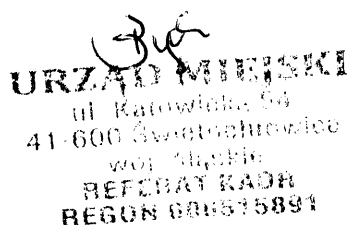 URZĄD MIEJSKI
ul. Katowicka 54
41-600 Świętochłowice
woj. śląskie
REFERAT KADR
REGON